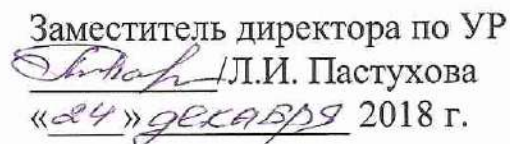 Заместитель директора по УР
/Л.И. Пастухова
«24» декабря 2018 г.